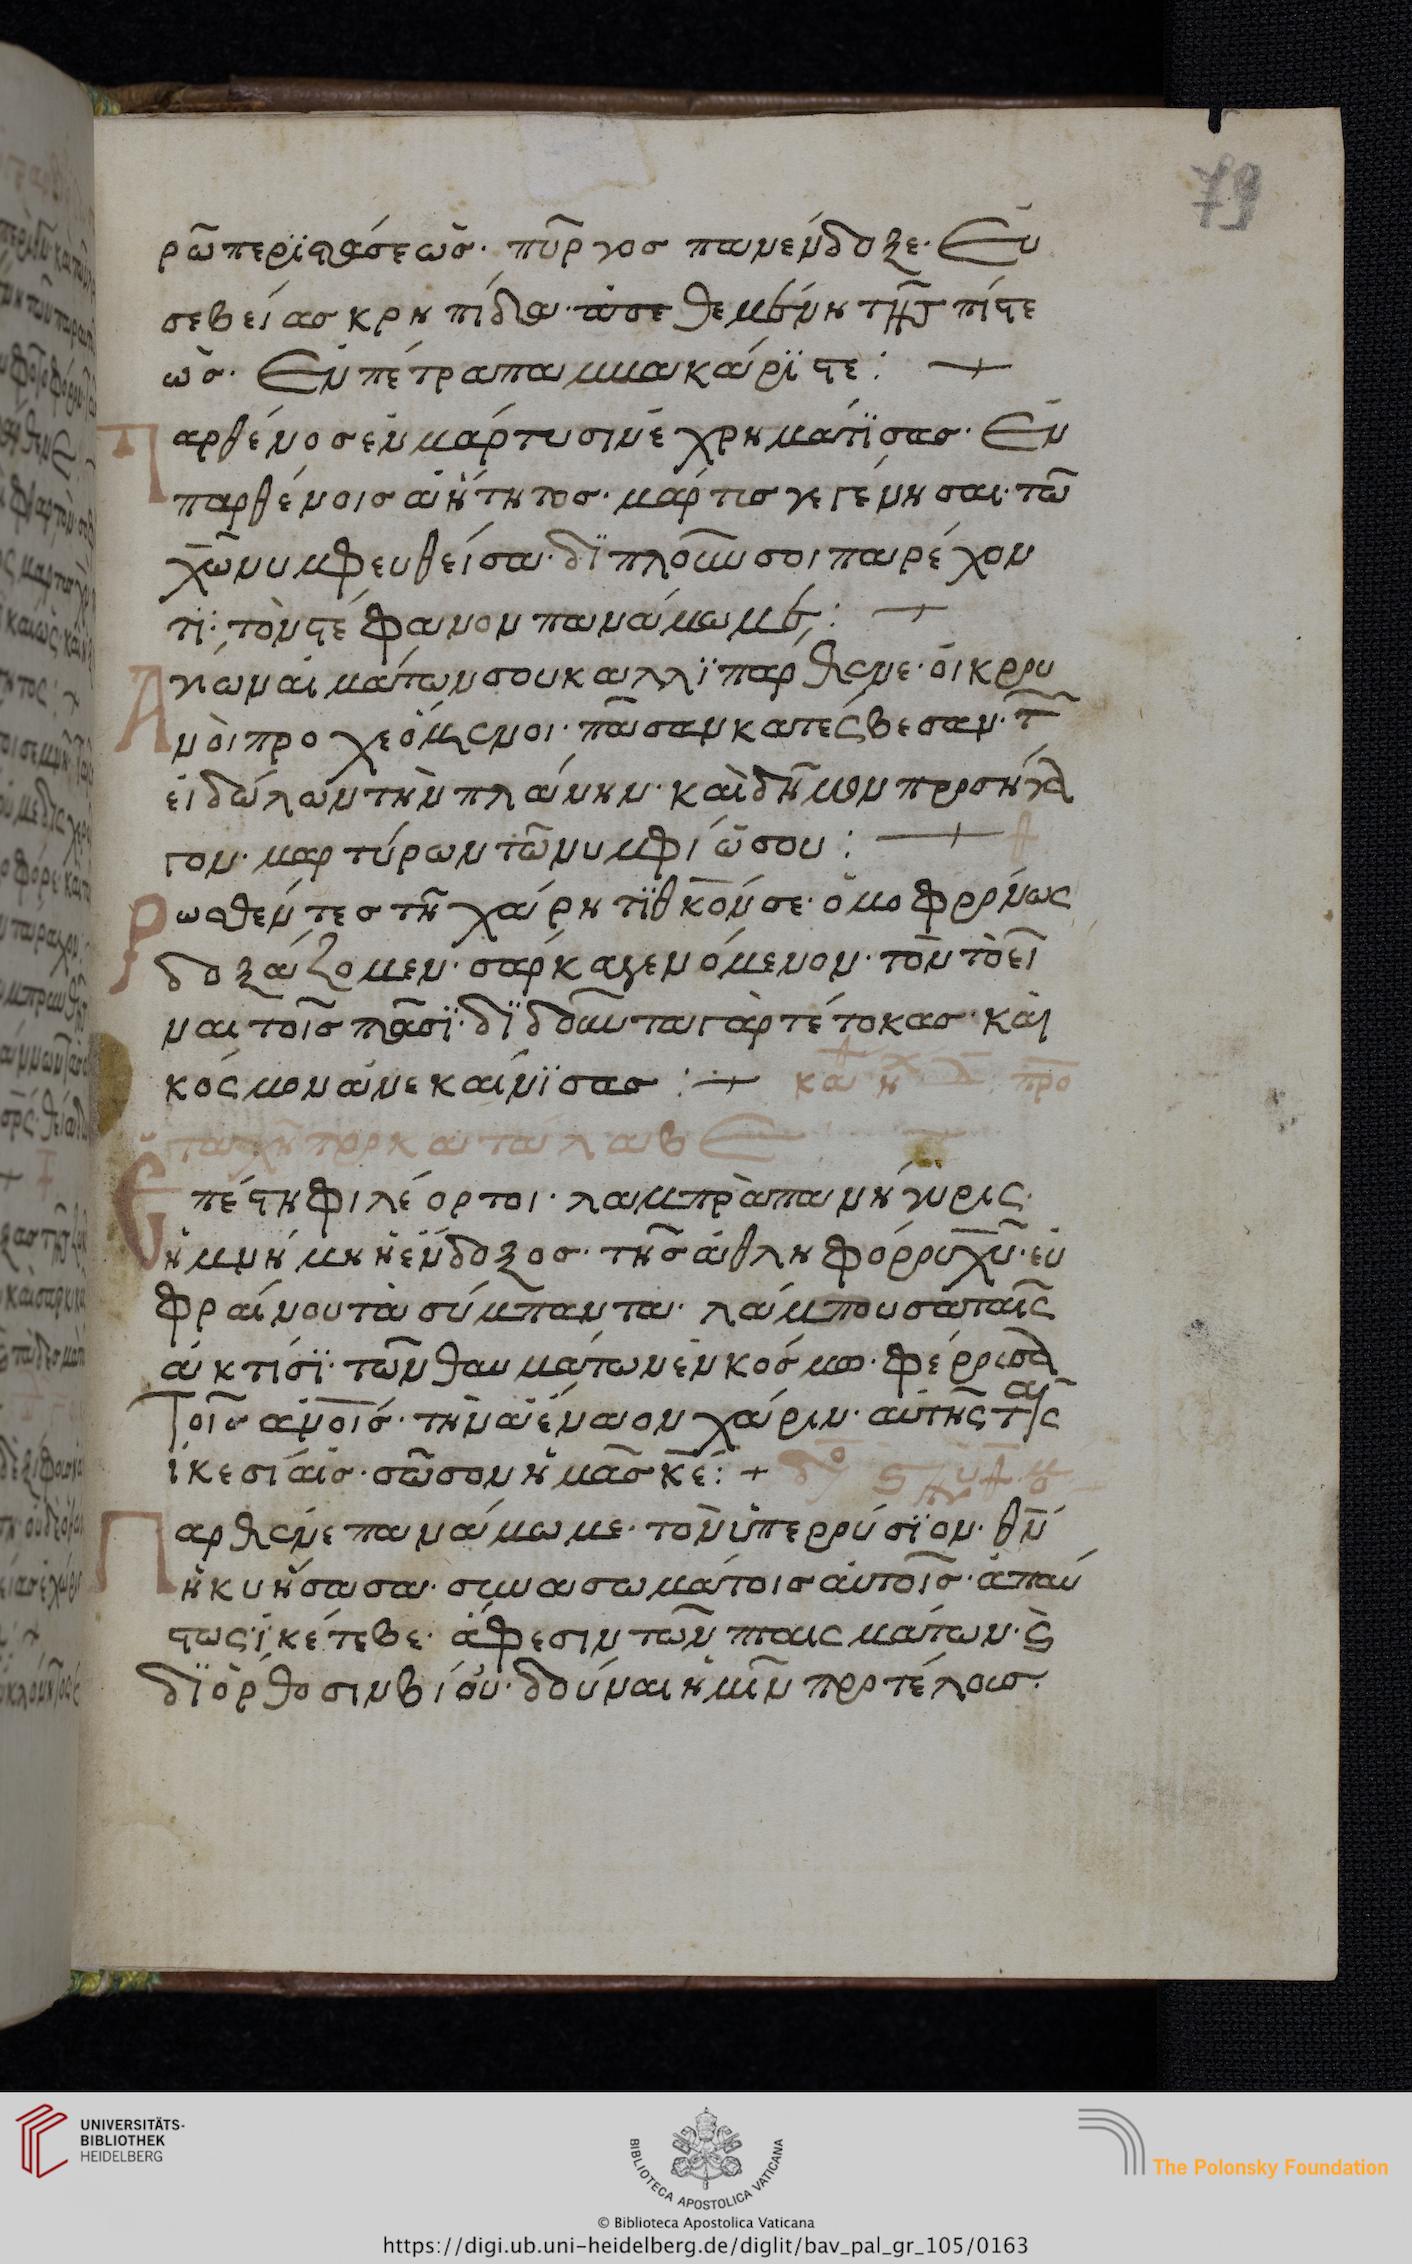 79
ρῶ περϊστάσεως· πῦργος πανένδοξε· Εὐ
σεβείας κρηπίδα· τεθεμένη τῆς πίστε
ως· Ἐν πέτρα παμμακάρϊστε:
Παρθένος ἐν μάρτυσιν ἐχρημάτϊσας· Ἐν
παρθένοις ἀήτητος· μάρτις γεγένησαι· τῶ
χῶ νυμφευθείσα· δϊπλοῦν σοι παρέχον
τϊ· τὸν στέφανον πανάμωμε:
Αγιῶν αἱμάτων σου καλλϊπάρθενε· οἱ κρου
νοὶ προχεόμενοι· πᾶσαν κατέσβεσαν· τ
εἰδώλων τὴν πλάνην· καὶ δῆμον προσήγα
γον· μαρτύρων τῶ νυμφίω σου:
Ρωσθέντες τῆ χάρητϊ θκον σε· ὁμοφρόνως
δοξάζομεν· σάρκα γενόμενον· τὸν τὸ εἶ
ναι τοῖς πᾶσϊ· δϊδοῦντα γὰρ τέτοκας· καὶ
κόσμον ἀνεκαίνϊσας:
Ἐπέστη φιλέορτοι· λαμπρὰ πανήγυρις·
ἡ μνήμη ἡ ἔνδοξος· τῆς ἀθληφόρου χυ· εὐ
φραίνου τὰ σύμπαντα· λάμπουσα ταῖς
ἀκτίσϊ· τῶν θαυμάτων ἐν κόσμω· φέρουσα
Τοῖς ἀνοις· τὴν ἀέναον χάριν· αὐτῆς ταῖς
ἱκεσίαις· σῶσον ἡμᾶς κε:
Παρθένε πανάμωμε· τὸν ὑπερρύσϊον· θν
ἡ κυήσασα· σὺν ἀσωμάτοις αὐτοῖς· ἀπαύ
στως ἱκέτεβε· ἄφεσιν τῶν πταισμάτων· ϗ
δϊόρθοσιν βίου· δούναι ἡμῖν προ τέλους·
UNIVERSITÄTS-
BIBLIOTHEK
HEIDELBERG
BIBLIOTECA APOSTOLICA VATICANA
The Polonsky Foundation
© Biblioteca Apostolica Vaticana
https://digi.ub.uni-heidelberg.de/diglit/bav_pal_gr_105/0163